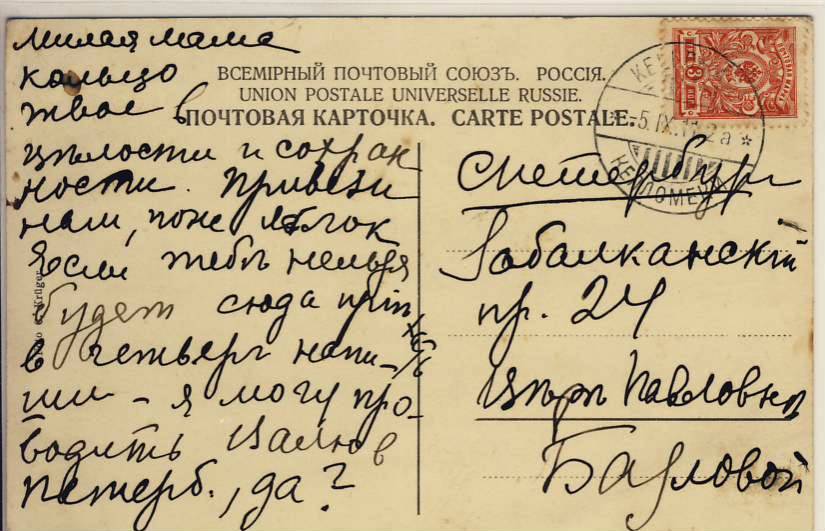 Милая мама
кольцо
твое в
цѣлости и сохран
ности. Привези
нам, поже яблок
Если тебѣ нельзя
будет сюда приѣ
хать
в четверг напи-
ши – я могу про-
водить в
Петерб., да?
ВСЕМІРНЫЙ ПОЧТОВЫЙ СОЮЗЪ. РОССІЯ.
UNION POSTALE UNIVERSELLE RUSSIE.
ПОЧТОВАЯ КАРТОЧКА. CARTE POSTALE.
-5.IX.11.2а
КЕЛЛОМЕКИ
С Петербург
Забалканскій
пр. 24
Павловнѣ
Krüger